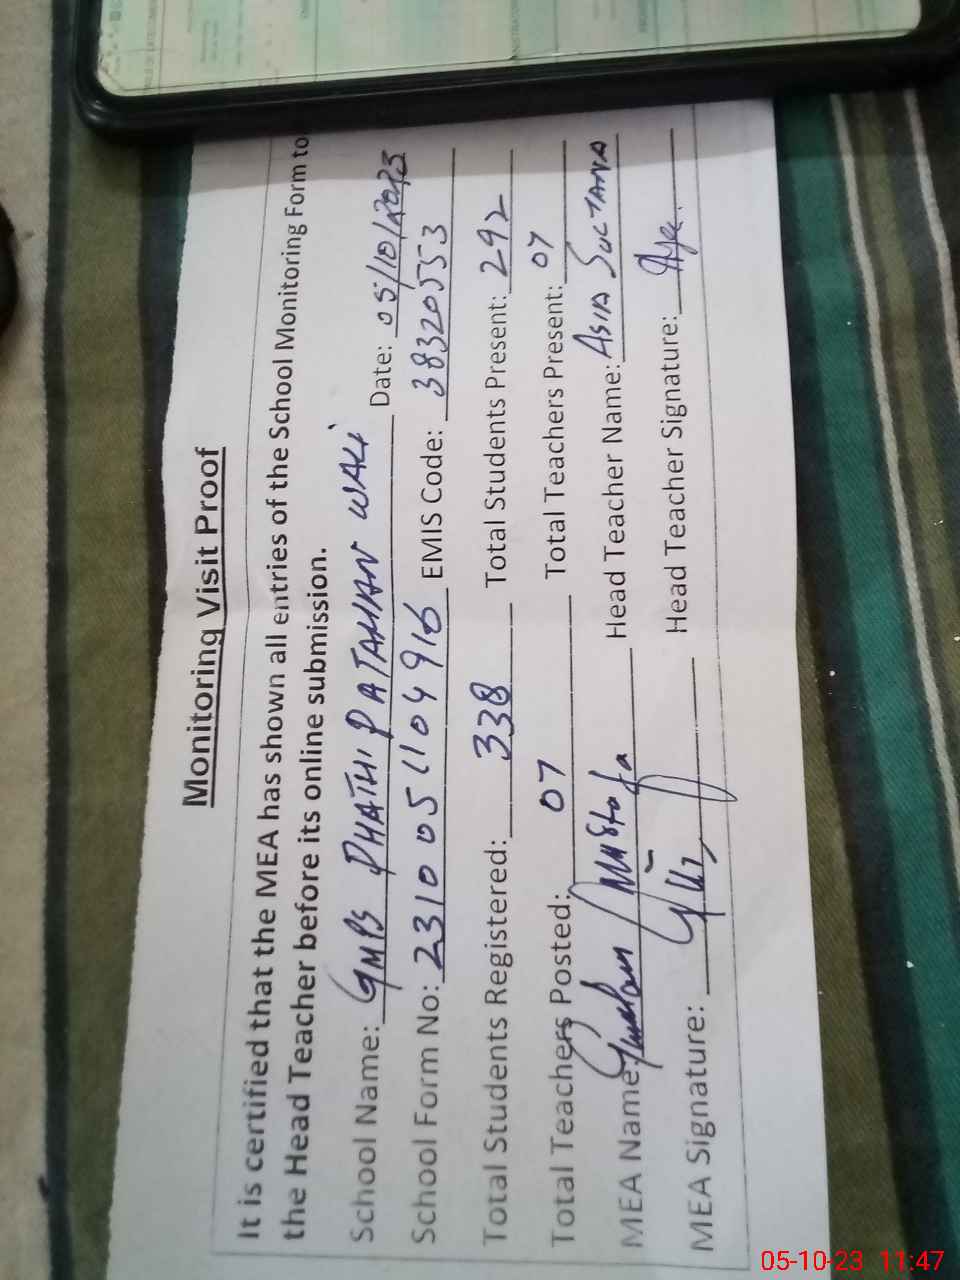 Monitoring Visit Proof
It is certified that the MEA has shown all entries of the School Monitoring Form to
the Head Teacher before its online submission.
School Name: GMPS PHATHI PATAHAN WALI Date: 05/10/2023
School Form No: 2310051104916 EMIS Code: 38320553
Total Students Registered: 338 Total Students Present: 292
Total Teachers Posted: 07 Total Teachers Present: 07
MEA Name: Ghulam Mustafa Head Teacher Name: ASIA SULTANA
MEA Signature: Head Teacher Signature:
05-10-23 11:47